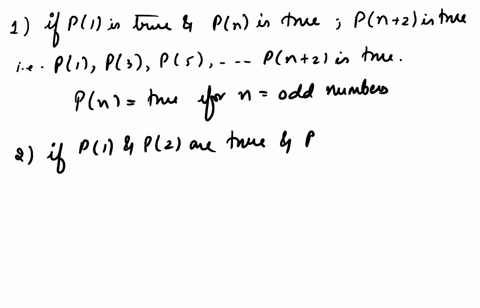 1) if P(1) is true & P(n) is true ; P(n+2) is true
i.e. P(1), P(3), P(5), --- P(n+2) is true.
P(n) = true for n = odd numbers
2) if P(1) & P(2) are true & P